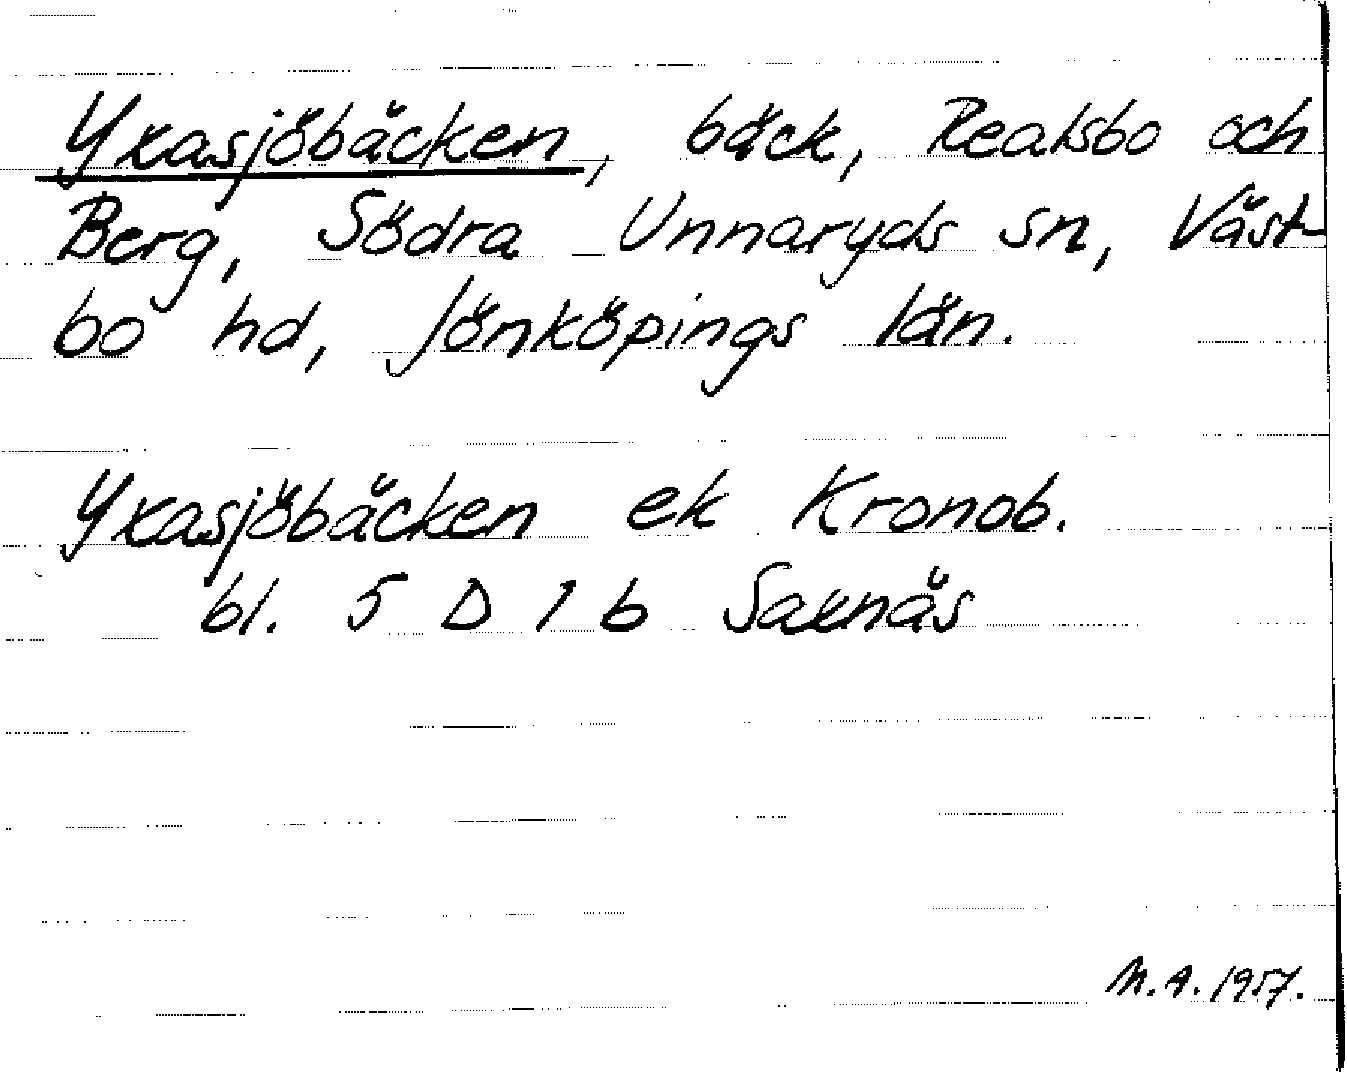 Yxasjöbäcken, bäck, Realsbo och
Berg, Södra Unnaryds sn, Väst-
bo hd, Jönköpings län.
Yxasjöbäcken ek Kronob.
bl. 5 D 1 b Saxnäs
M.A. 1957.